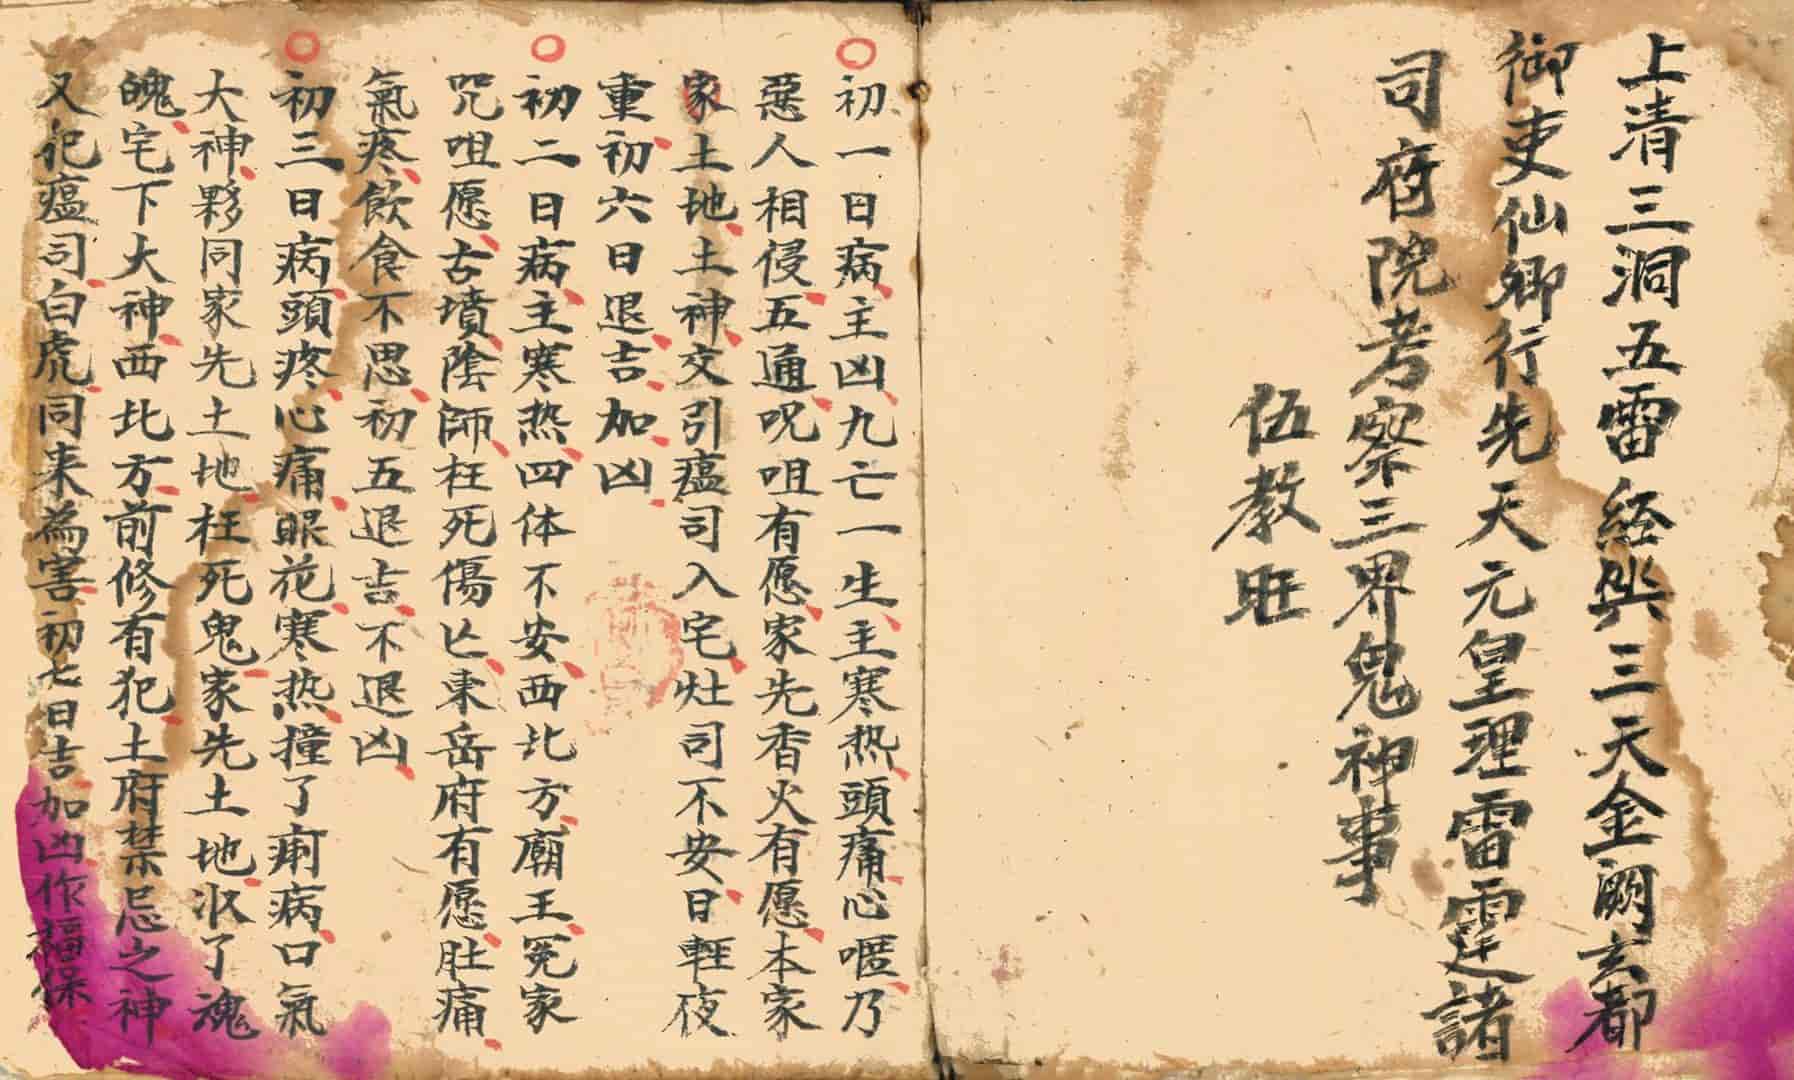 上清三洞五雷经箓三天金阙玄都
御史仙卿行先天元皇理雷霆諸
司府院考察三界鬼神事
伍教旺
初一日病主凶九亡一生主寒热頭痛心嘔乃
惡人相侵五通呪咀有愿家先香火有愿本家
家土地土神交引瘟司入宅灶司不安日輕夜
重初六日退吉加凶
初二日病主寒热四体不安西北方廟王冤家
咒咀愿古墳陰師枉死傷亡東岳府有愿肚痛
氣疼飲食不思初五退吉不退凶
初三日病頭疼心痛眼花寒热撞了痢病口氣
大神夥同家先土地枉死鬼家先土地収了魂
魄宅下大神西北方前修有犯土府禁忌之神
又犯瘟司白虎同来為害初七日吉加凶作福保